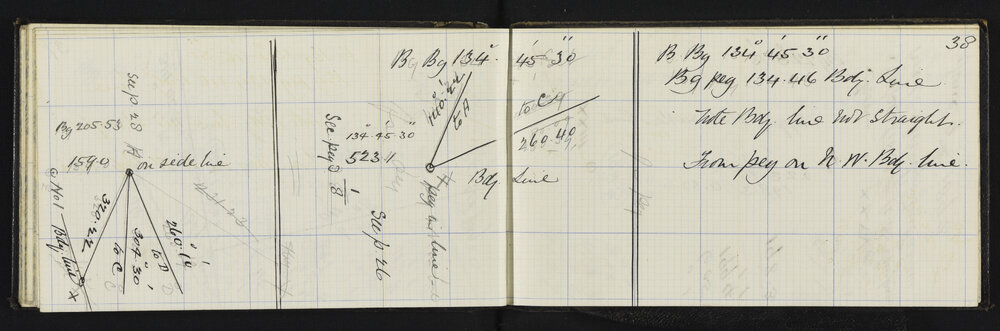 38
see p 28
Bg 205.53
1590 A on side line
320.22
304°.30'
to C
260.14'
to D
No 1 Bdy line X
B Bg 134°. 45' 30"
140°.22'
to A
to C
260.40
See page 8
134.45.30
523.1
peg in line
Bdy Line
See p 26
B Bg 134° 45' 30"
Bg peg 134.46 Bdy. Line
Note Bdy line not straight.
From peg on N. W. Bdy. line.